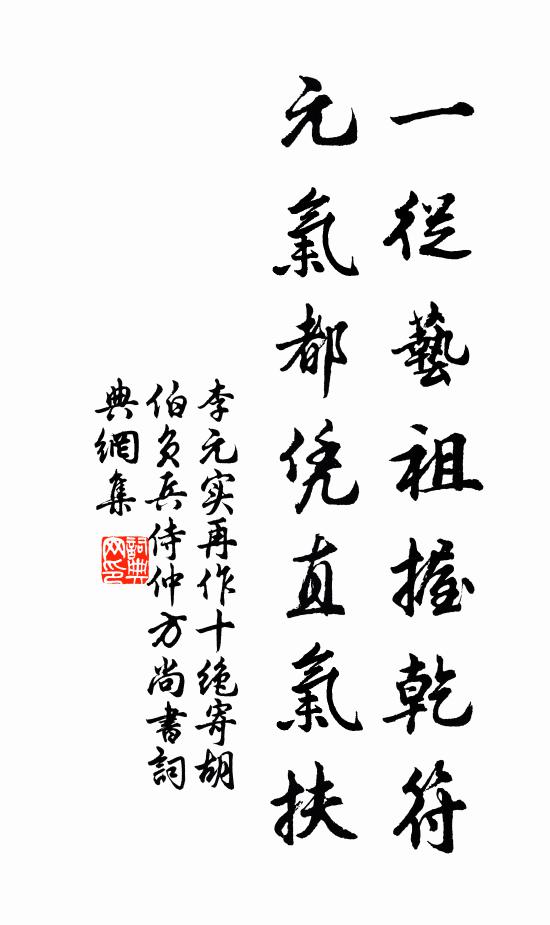 一從藝祖握乾符
元氣都凭直氣扶
李元实再作十绝寄胡
伯負兵侍仲方尚書詞
典網集
詞典
网印